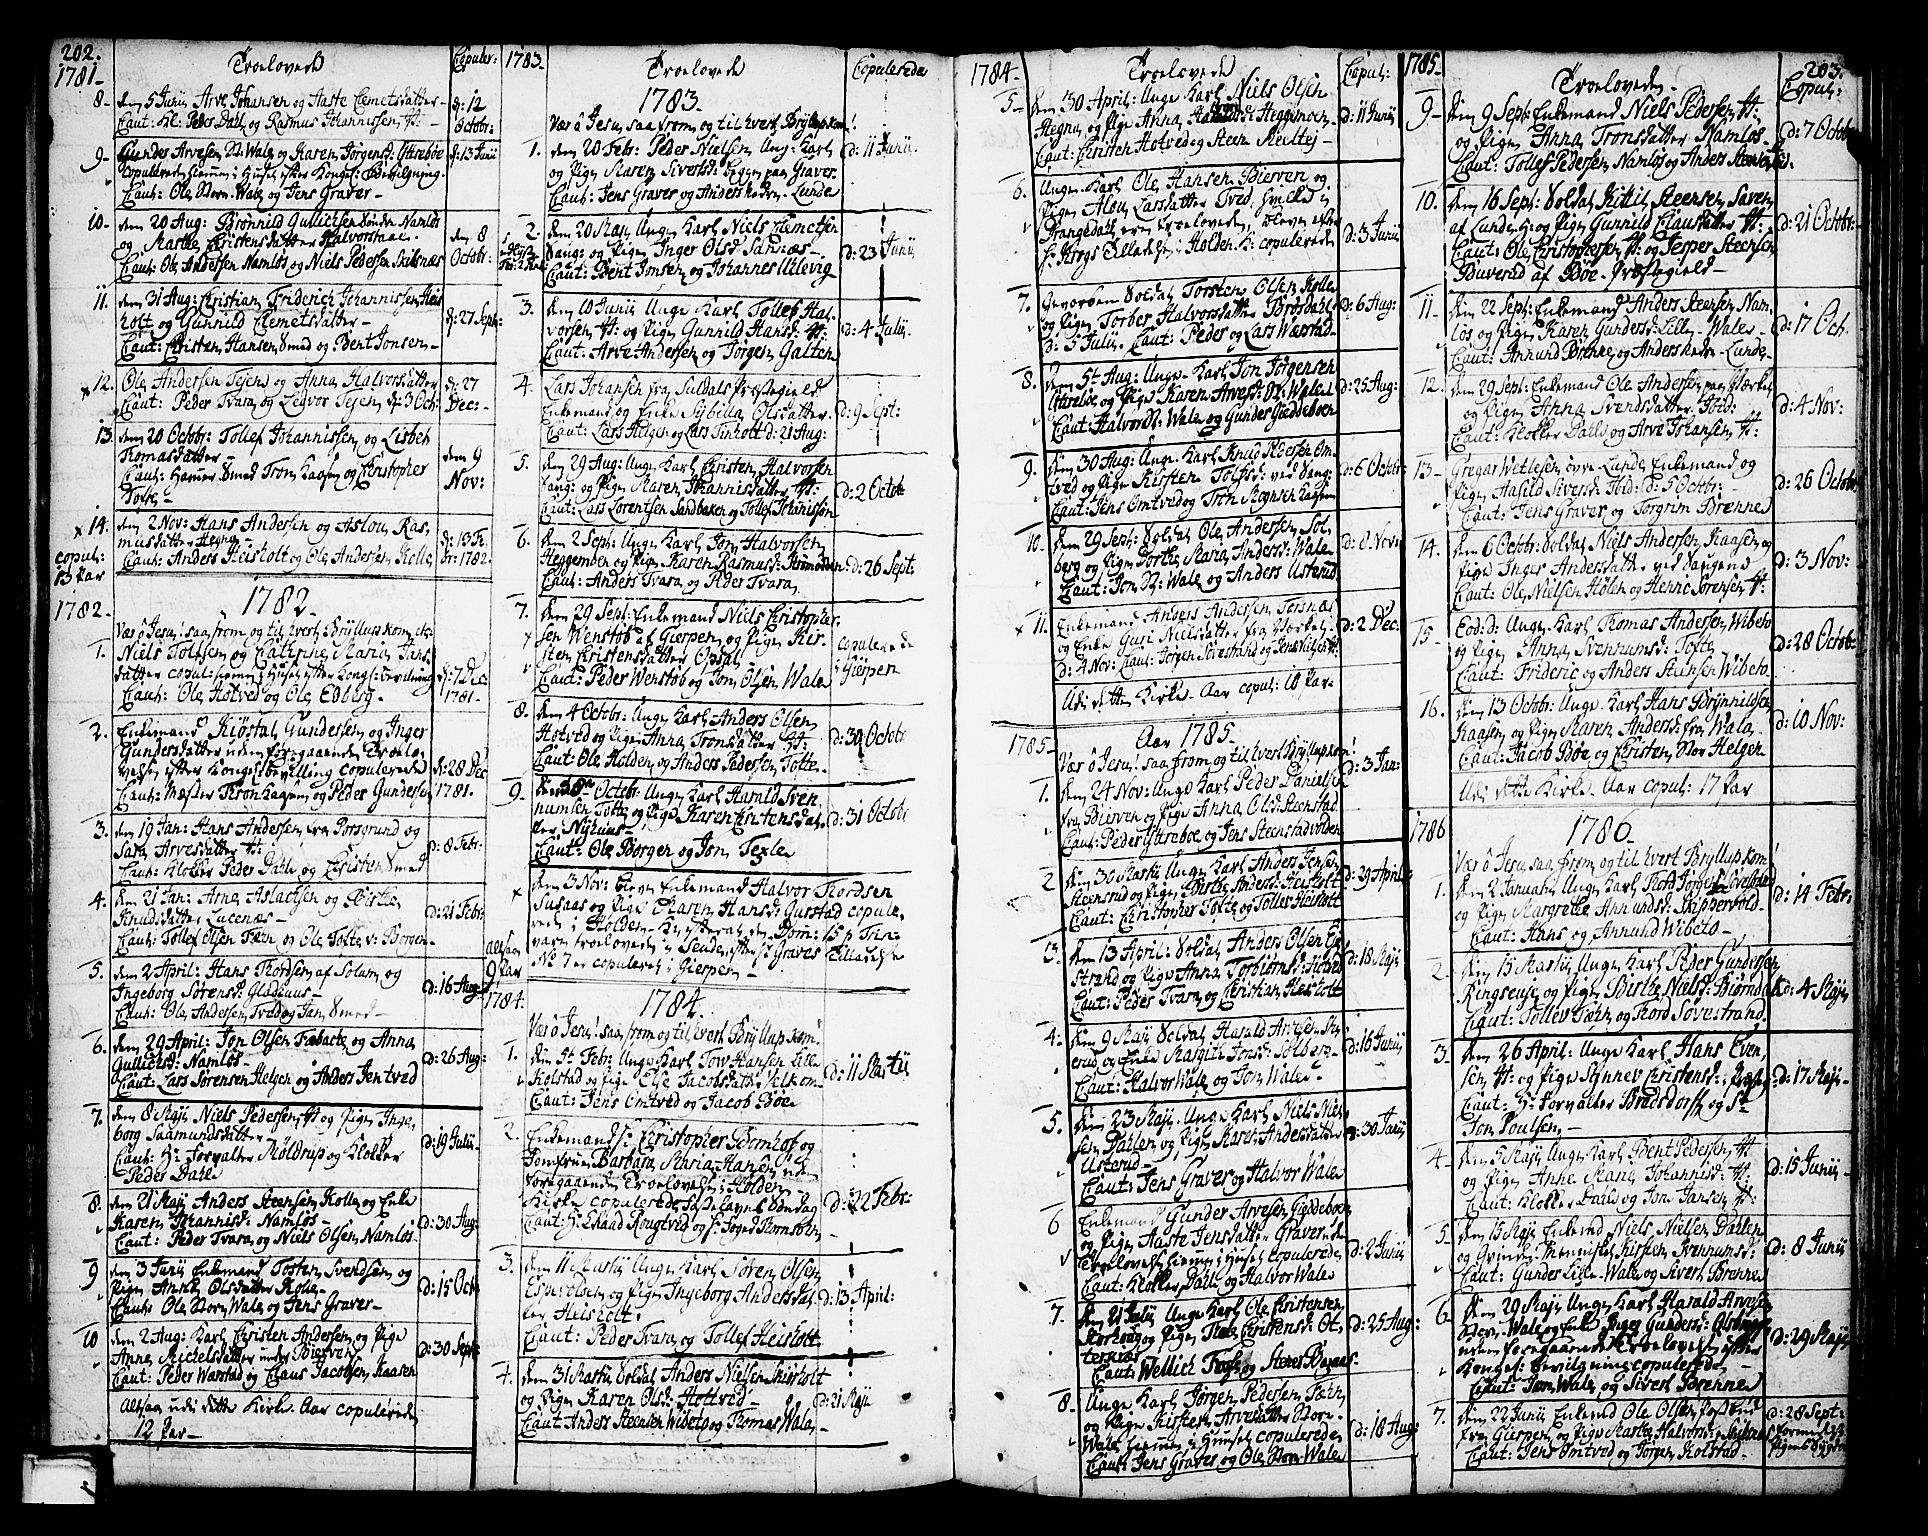 202.
1781.
Troelovede
Copuler:
8. dem 5 Junii Arve Johansen og Aaste Clemetsdatter
Caut: Kl: Peder Dahl og Rasmus Johannissen, H:
d: 12 Octobr:
9. Gunder Arvesen N: Wale og Karen Jørgensd: Ittrebøe
copulerede hiemme i Huset efter Kongel: Bevilgning
Caut: Ole Norn Wale og Jens Graver
d: 13 Junii
10. dem 20 Aug: Brønild Gullichsen Namløs
og Maske Christensdatter Halvorstad
Caut: Ole Andersen Namløs og Niels Pedersen Skilsnæs
dem 8 Octobr:
11. dem 31 Aug: Christian Friderich Johannissen Heis
holt og Gunnild Clemetsdatter
Caut: Christen Hansen Smed og Bent Jonsen
d: 27 Sept:
12. Ole Andersen Tejen og Anna Halvorsdatter
Caut: Peder Tvara og Ledvor Tejen d: 3 Oct:
d: 27 Dec:
13. dem 20 Octobr: Tollef Johannissen og Lisbeth
Thomasdatter
Caut: Hammer Smed Tron Kaasen og Christopher
dem 9 Nov:
14. dem 2 Nov: Hans Andersen og Aslou Ras
musdatter Hegna
Caut: Anders Heisholt og Ole Andersen Kolle
d: 13 Fe
br: 1782.
copul:
13 Par
1782.
1782.
Vær ô Jesu! saa from og til hvert Bryllup kom etc
1. Niels Tollefsen og Cathrine Maria Jans
datter copul: hiemme i Huset efter Kongel: Bevilning
Caut: Ole Hotved og Ole Edberg
d: 7 Dec
1781.
2. Enkemand Kiøstol Gundersen og Inger
Gundersdatter uden foregaaende Troelo
velse efter Kongel: bevilling copulerede
Caut: Mester Tron Kaasen og Peder Gundersen
d: 28 Dec
1781.
3. dem 19 Jan: Hans Andersen fra Porsgrund og
Sara Arvesdatter H:
Caut: Klokker Peder Dahl og Christen Smed
d: 8 Febr:
4. dem 21 Jan: Arne Aslachsen og Birthe
Knudsdatter Lucenæs
Caut: Tollef Olsen Færn og Ole Tofte v: Borgen
d: 21 Febr:
5. dem 2 April: Hans Thordsen af Solum og
Ingeborg Sørensd: Gladhuus
Caut: Ole Andersen Tved og Jan Smed
d: 16 Aug:
6. dem 29 April: Jon Olsen Fæbacte og Anna
Gullichsd: Namløs
Caut: Lars Sørensen Helgen og Anders Jentved
d: 26 Aug:
7. dem 8 Maji Niels Pedersen H: og Pigen Inge
borg Saamundsdatter
Caut: Hr: Forvalter Møldrup og Klokker
Peder Dahl
d: 19 Julii
8. dem 21 Maji Anders Steensen Kolle og Enke
Karen Johannisd: Namløs
Caut: Peder Tvara og Niels Olsen Namløs
d: 30 Aug:
9 dem 3 Junii Enkemand Tosten Svendsen og
Pigen Anne Olsdatter Kolle
Caut: Ole Norn Wale og Jens Graver
d: 15 Oct:
10 dem 2 Aug: Karl Christen Andersen og Pige
Anna Michelsdatter under Bierven
Caut: Peder Warstad og Claus Jacobsen Kaasen
d: 30 Sept:
altsaa udi dette Kirke Aar copulerede
12 Par
1783.
Troelovede
Copulerede
1783.
Vær ô Jesu, saa from og til hvert Bryllup kom!
1. dem 20 Febr: Peder Nielsen Ung: Karl
og Pigen Karen Siversd: begge paa Graver
Caut: Jens Graver og Anders neden Lunde
d: 11 Junii
2. dem 20 Maji Ung: Karl Niels Clemetsen
Saug: og Pigen Inger Olsd: Sannæs
Caut: Bent Jonsen og Johannes Utevig
d: 23 Junii
3. dem 10 Junii Unge Karl Tollef Hal
vorsen H: og Pigen Gunnild Hansd: H:
Caut: Arve Andersen og Jørgen Galten
d: 4 Julii
4. Lars Johansen fra Suldals Præstegield
Enkemand og Enke Sybilla Olsdatter
Caut: Lars Helgen og Lars Tinholt d: 21 Aug:
d: 9 Sept:
5. dem 29 Aug: Ung Karl Christen Halvorsen
Saug: og Pigen Karen Johannisdatter H:
Caut: Lars Lorentsen Sandbakken og Tollef Johannissen
d: 2 Octob
6. dem 2 Sept: Unge Karl Jon Halvorsen
Heggemoen og Pigen Karen Rasmusd:
Caut: Anders Tvara og Peder Tvara
d: 26 Sept:
7. dem 29 Sept: Enkemand Niels Christopher
sen Wenstøb af Gierpen og Pigen Kir
sten Christensdatter Opsal
Caut: Peder Wenstøb og Jon Olsen Wale
copulerede
i Gierpen
8. dem 4 Octobr: Unge Karl Anders Olsen
Hotved og Pigen Anna Tronsdatter H:
Caut: Ole Holden og Anders Pedersen Tofte
d: 30 Octobr
9. dem 8de Octobr: Ung Karl Harald Sven
numsen Tofte og Pige Karen Cristensdat
ter Nyhuus
Caut: Ole Borgen og Jon Texle
d: 31 Octobr
dem 3 Nov: blev Enkemand Halvor Thordsen
Susaas og Pige Maren Hansd: Gurstad copule
rede i Holden Kirke
vare troelovede i Seude efter Hr: Graves
No 7 er copuleret i Gierpen
Dom: 15 p Trin:
Tilladelse
altsaa
9 Par
1784.
1784.
Vær ô Jesu! saa from og til hvert Bryllup kom!
1. dem 5t Febr: Unge Karl Tov Hansen Lille
Kolstad og Pige Else Jacobsdatt: Velkom
Caut: Jens Omtved og Jacob Bøe
d: 11 Martii
2. Enkemand Hr: Christopher Bomhof og
Jomfrue Barbara Maria Hansen uden
foregaaende Troelovelse i Holden
Kirke copulerede
Caut: Hr: Ehaad Rougtved og Hr: Foged Thomsohn
d: 22 Febr:
3. dem 11 Martii Unge Karl Søren Olsen
Espestloen og Pigen Ingeborg Andersdat
ter Heisholt
Caut: Peder Tvara og Tollef Heisholt
d: 13 April:
4. dem 31 Martii Soldat Anders Nielsen Heisholt
og Pigen Karen Olsd: Hottved
Caut Anders Steensen Wibeto og Thomas Wala
d: 21 Maji
1784.
Troelovede
Copul:
5 dem 30 April: Unge Karl Niels Olsen
Hegna og Pige Anna Aaslousd: Heggemoen
Caut: Christen Hotved og Steen Meiltej
d: 11 Junii
6. Unge Karl Ole Hansen Bierven og
Pigen Aslou Larsdatter Tved, hvilke i
Drangedahl ere troelovede, bleve efter
Hr: Borgs Tilladelse i Holden K: copulerede
d: 3 Junii
7. Gevorben Soldat Torsten Olsen Kolle
og Pigen Torber Halvorsdatter Brøsdahl
d: 5 Julii. Caut: Peder og Lars Wærstad
d: 6 Aug:
8. dem 5t Aug: Unge Karl Jon Jørgensen
Ittrebøe og Pige Karen Arvesd: N: Wale
Caut: Halvor N: Wale og Gunder Gieddeboen
d: 25 Aug:
9. dem 30 Aug: Unge Karl Knud Pedersen Om
tved og Pige Kirsten Tolfsd: ved Saug:
Caut: Jens Omtved og Tron Mognsen Kaasen
d: 6 Octobr:
10. dem 29 Sept: Soldat Ole Andersen Sol
berg og Pigen Dorthe Maria Andersd: Wale
Caut: Jon N: Wale og Anders Usterud
d: 8 Nov:
11. Enkemand Anders Andersen Torsnæs
og Enke Guri Nielsdatter fra Værket
d: 4 Nov: Caut: Jørgen Sovestrand og Jens Nilsen H:
d: 2 Dec:
Udi dette Kirke Aar copul: 10 Par.
1785.
Aar 1785.
Vær ô Jesu! saa from og til hvert Bryllup kom!
1. dem 24 Nov: Unge Karl Peder Danielsen
fra Bierven og Pige Anna Olsd: Steenstad
Caut: Peder Ittreboe og Jens Steenstadvolden
d: 3 Jan:
2 dem 30 Martii Unge Karl Anders Jensen
Steensrud og Pigen Birthe Andersd: Heisholt
Caut: Christopher Tofte og Tollef Heisholt
d: 29 April:
3. dem 13 April: Soldat Anders Olsen Ej
strand og Pige Anna Torbiørnsd: Hotved
Caut: Peder Tvara og Christian Heisholt
d: 18 Maji
4. dem 9 Maji Soldat Harald Arvesen Ny
erud og Enke Margit Jonsd: Solberg
Caut: Halvor Wale og Jon Wale
d: 16 Junii
5. dem 23 Maji Unge Karl Niels Niel
sen Dahlen og Pigen Karen Andersdatter
Usterud
Caut: Jens Graver og Halvor Wale
d: 30 Junii
6 Enkemand Gunder Arvesen Gieddeboen
og Pigen Aaste Jensdatter Graver uden
Troelovelse hiemme i Huset copulerede
Caut: Klokker Dahl og Halvor Wale
d: 2 Junii
7. dem 21 Julii Unge Karl Ole Christensen
Storhoug og Pigen Thale Christensd: Ot
ternær
Caut: Wellich Foss og Steen Bagaas
d: 25 Aug:
8. Unge Karl Jørgen Pedersen Færn
og Pige Kirsten Arvesdatter Norn
Wale hiemme i Huuset copulerede
Caut: Jens Graver og Ole Norn Wale
d: 18 Aug:
1785.
Troelovede
203.
Copul:
9. dem 9 Sept: Enkemand Niels Pedersen H:
og Pigen Anna Tronsdatter Namløs
Caut: Tollef Pedersen Namløs og Anders Steensen
d: 7 Octobr
10. dem 16 Sept: Soldat Kittil Steensen Saven
af Lundeh: og Pigen Gunnild Clausdatter H:
Caut: Ole Christophersen H: og Jesper Steensen
Buverud af Bøe Præstegield
d: 21 Octobr:
11. dem 22 Sept: Enkemand Anders Steensen Nam
løs og Pigen Karen Gundersd: Lille Wale
Caut: Annund Brenne og Anders neden Lunde
d: 17 Oct.
12. dem 29 Sept: Enkemand Ole Andersen paa Værket
og Pigen Anna Svendsdatter Ibid:
Caut: Klokker Dahl og Arve Johansen H:
d: 4 Nov:
13. Gregar Wetlesen øvre Lunde Enkemand og
Pigen Aasild Siversd: Ibid: d: 5 Octobr:
Caut: Jens Graver og Torgrim Brenne
d: 26 Octobr
14. dem 6 Octobr: Soldat Niels Andersen Kaasen og
Pige Inger Andersdatter ved Saugene
Caut: Ole Nielsen Holen og Henric Sørensen H:
d: 3 Nov:
15. Eod: d: Unge Karl Thomas Andersen Wibeto
og Pigen Anna Svennumsd: Tofte
Caut: Frideric og Anders Steensen Wibeto
d: 28 Octobr
16. dem 13 Octobr: Unge Karl Hans Brynnildsen
Kaasen og Pigen Karen Andersd: fra Wala
Caut: Jacob Bøe og Christen Nor Helgen
d: 10 Nov:
Udi dette Kirke Aar copul: 17 Par
1786
1786.
Vær ô Jesu saa from og til hvert Bryllup kom!
1. dem 2 Januarii Ung Karl Thord Jørgensen Sovestrand
og Pigen Margrethe Annundsd: Skippervold
Caut: Hans og Annund Wibeto
d: 14 Febr:
2. dem 15 Martii Unge Karl Peder Gundersen
Ringseuse og Pigen Birthe Nielsd: Biørndal
Caut: Tollev Færn og Thord Sovestrand
d: 4 Maji
3. dem 26 April: Unge Karl Hans Even
sen H: og Pige Synnev Christensd: ibid:
Caut: Hr: Forvalter Bredsdorff og Sr
Jon Poulsen
d: 17 Maji
4. dem 5 Maji Unge Karl Bent Pedersen H:
og Pigen Anne Marie Johannisd: H:
Caut: Klokker Dahl og Jon Jansen H:
d: 15 Junii
5. dem 15 Maji Enkemd Niels Nielsen Dahlen
og Qvinde Mennisket Kirsten Svennumsd:
Caut: Gunder Lille Wale og Sivert Brenne
d: 8 Junii
6. dem 29 Maji Unge Karl Harald Arvesen
Norn Wale og Enke Inger Gundersd:
uden foregaaende Troelovelse efter
Kongel: Bevilgning copulerede
Caut: Jon Wale og Sivert Brenne
d: 29 Maji
7. dem 22 Junii Enkemd Ole Olsen
fra Gierpen og Pige Marthe Halvorsd:
Caut: Jens Omtved og Jørgen Kolstad
d: 28 Sept: